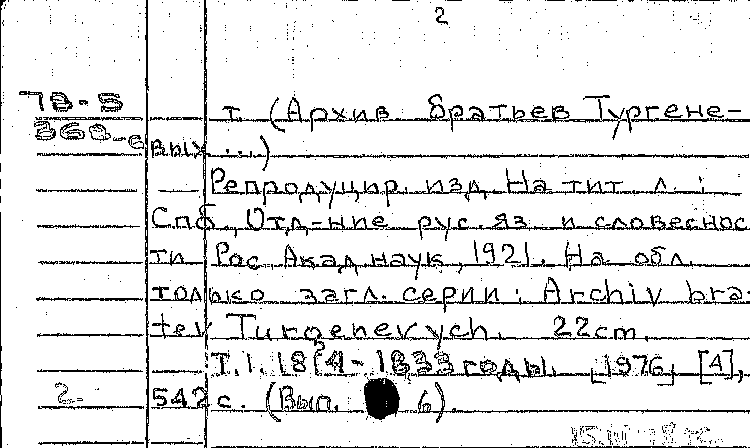 2
78-5 т. (Архив братьев Тургене-
368-6 вых ...)
Репродуцир. изд. На тит. л.:
Спб., Отд-ние рус. яз. и словеснос
ти Рос. Акад. наук, 1921. На обл.
только загл. серии: Archiv bra-
tev Turgenevych. 22cm.
Т.1. 1814-1833 годы. [1976], [4],
2. 542 с. (Вып. 6).